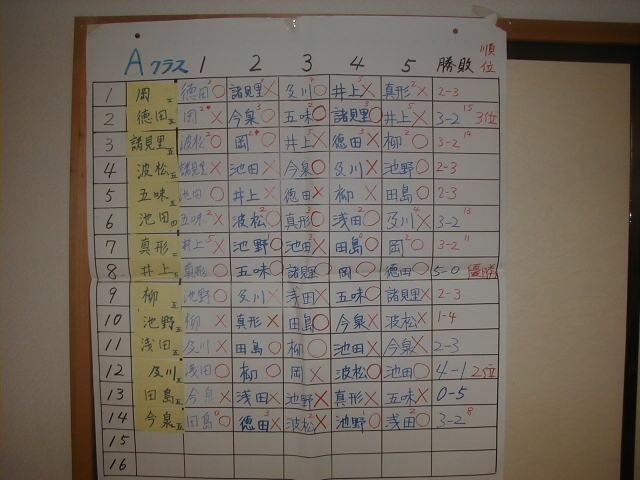 Aクラス 1 2 3 4 5 勝敗 順位
1 岡 徳田○ 諸見里× 及川○ 井上× 真形× 2-3
2 徳田五 岡× 今泉○ 五味○ 諸見里○ 井上× 3-2 15 3位
3 諸見里五 波松○ 岡○ 井上× 徳田× 柳○ 3-2 14
4 波松五 諸見里× 池田× 今泉○ 及川× 池野○ 2-3
5 五味五 池田○ 井上× 徳田× 柳× 田島○ 2-3
6 池田四 五味× 波松○ 真形○ 浅田○ 及川× 3-2 13
7 真形 井上× 池野○ 池田× 田島○ 岡○ 3-2 11
8 井上 真形○ 五味○ 諸見里○ 岡○ 徳田○ 5-0 優勝
9 柳五 池野○ 及川× 浅田× 五味○ 諸見里× 2-3
10 池野五 柳× 真形× 田島○ 今泉× 波松× 1-4
11 浅田五 及川× 田島○ 柳○ 池田× 今泉× 2-3
12 及川五 浅田○ 柳○ 岡× 波松○ 池田○ 4-1 2位
13 田島五 今泉× 浅田× 池野× 真形× 五味× 0-5
14 今泉五 田島○ 徳田× 波松× 池野○ 浅田○ 3-2 8
15
16